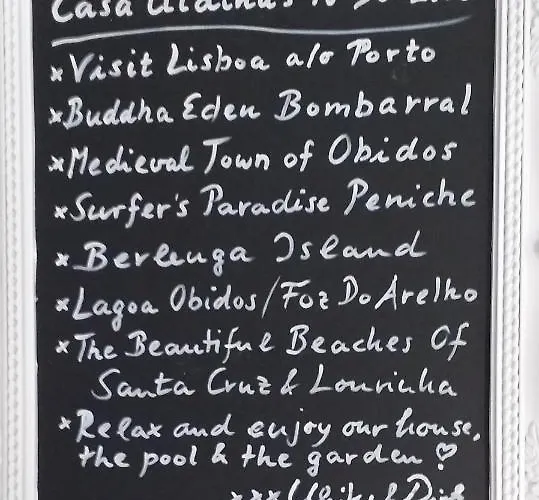 Casa
* Visit Lisboa a/o Porto
* Buddha Eden Bombarral
* Medieval Town of Obidos
* Surfer's Paradise Peniche
* Berlenga Island
* Lagoa Obidos/Foz Do Arelho
* The Beautiful Beaches Of
Santa Cruz & Lourinha
* Relax and enjoy our house,
the pool & the garden ♡
xxx